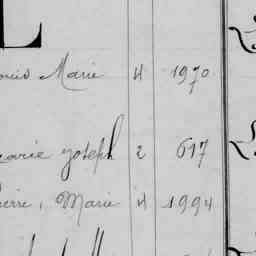 L
Marie 4 1970
Marie Joseph 2 617
Pierre, Marie 4 1994